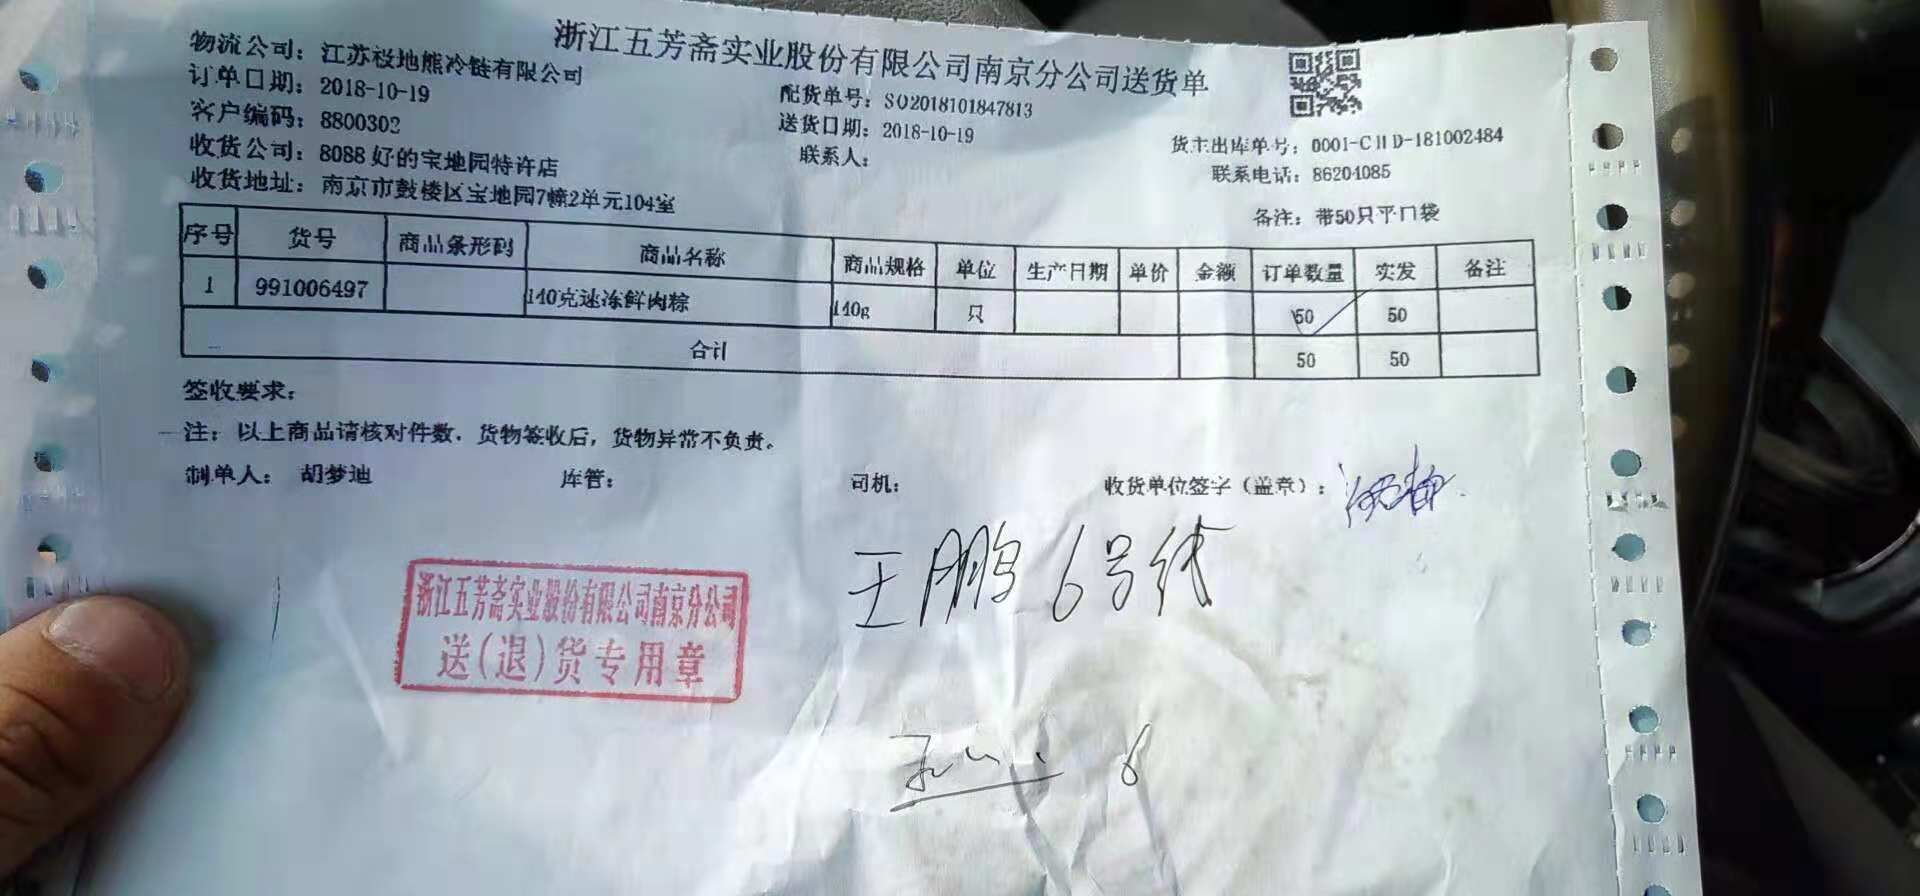 浙江五芳斋实业股份有限公司南京分公司送货单
物流公司：江苏极地熊冷链有限公司
订单日期：2018-10-19
配货单号：SO2018101847813
客户编码：8800302
送货日期：2018-10-19
货主出库单号：0001-CHD-181002484
收货公司：8088好的宝地园特许店
联系人：
联系电话：86204085
收货地址：南京市鼓楼区宝地园7幢2单元104室
备注：带50只平口袋
序号 货号 商品条形码 商品名称 商品规格 单位 生产日期 单价 金额 订单数量 实发 备注
1 991006497 140克速冻鲜肉粽 140g 只 50 50
合计 50 50
签收要求：
注：以上商品请核对件数，货物签收后，货物异常不负责。
制单人：胡梦迪 库管： 司机： 收货单位签字（盖章）：
王鹏 6号线
浙江五芳斋实业股份有限公司南京分公司
送(退)货专用章
6